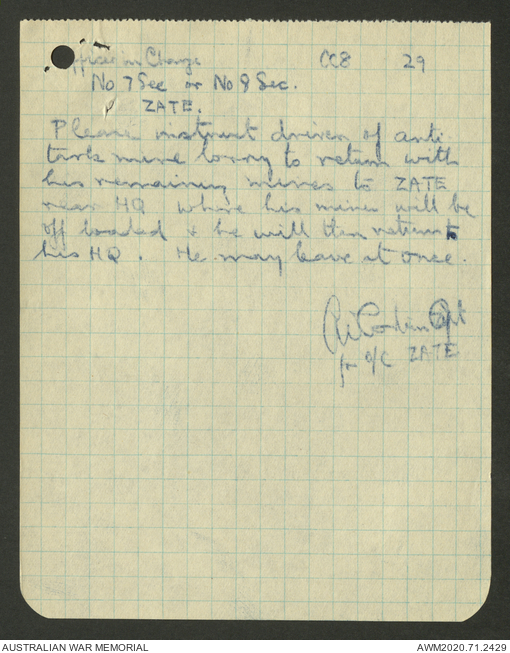 Officer in Charge CC8 29
No 7 Sec or No 9 Sec.
ZATE.
Please instruct driver of anti
tank mine lorry to return with
his remaining mines to ZATE
rear HQ where his mines will be
off loaded & he will then return to
his HQ. He may leave at once.
Capt
for O/C ZATE
AUSTRALIAN WAR MEMORIAL AWM2020.71.2429